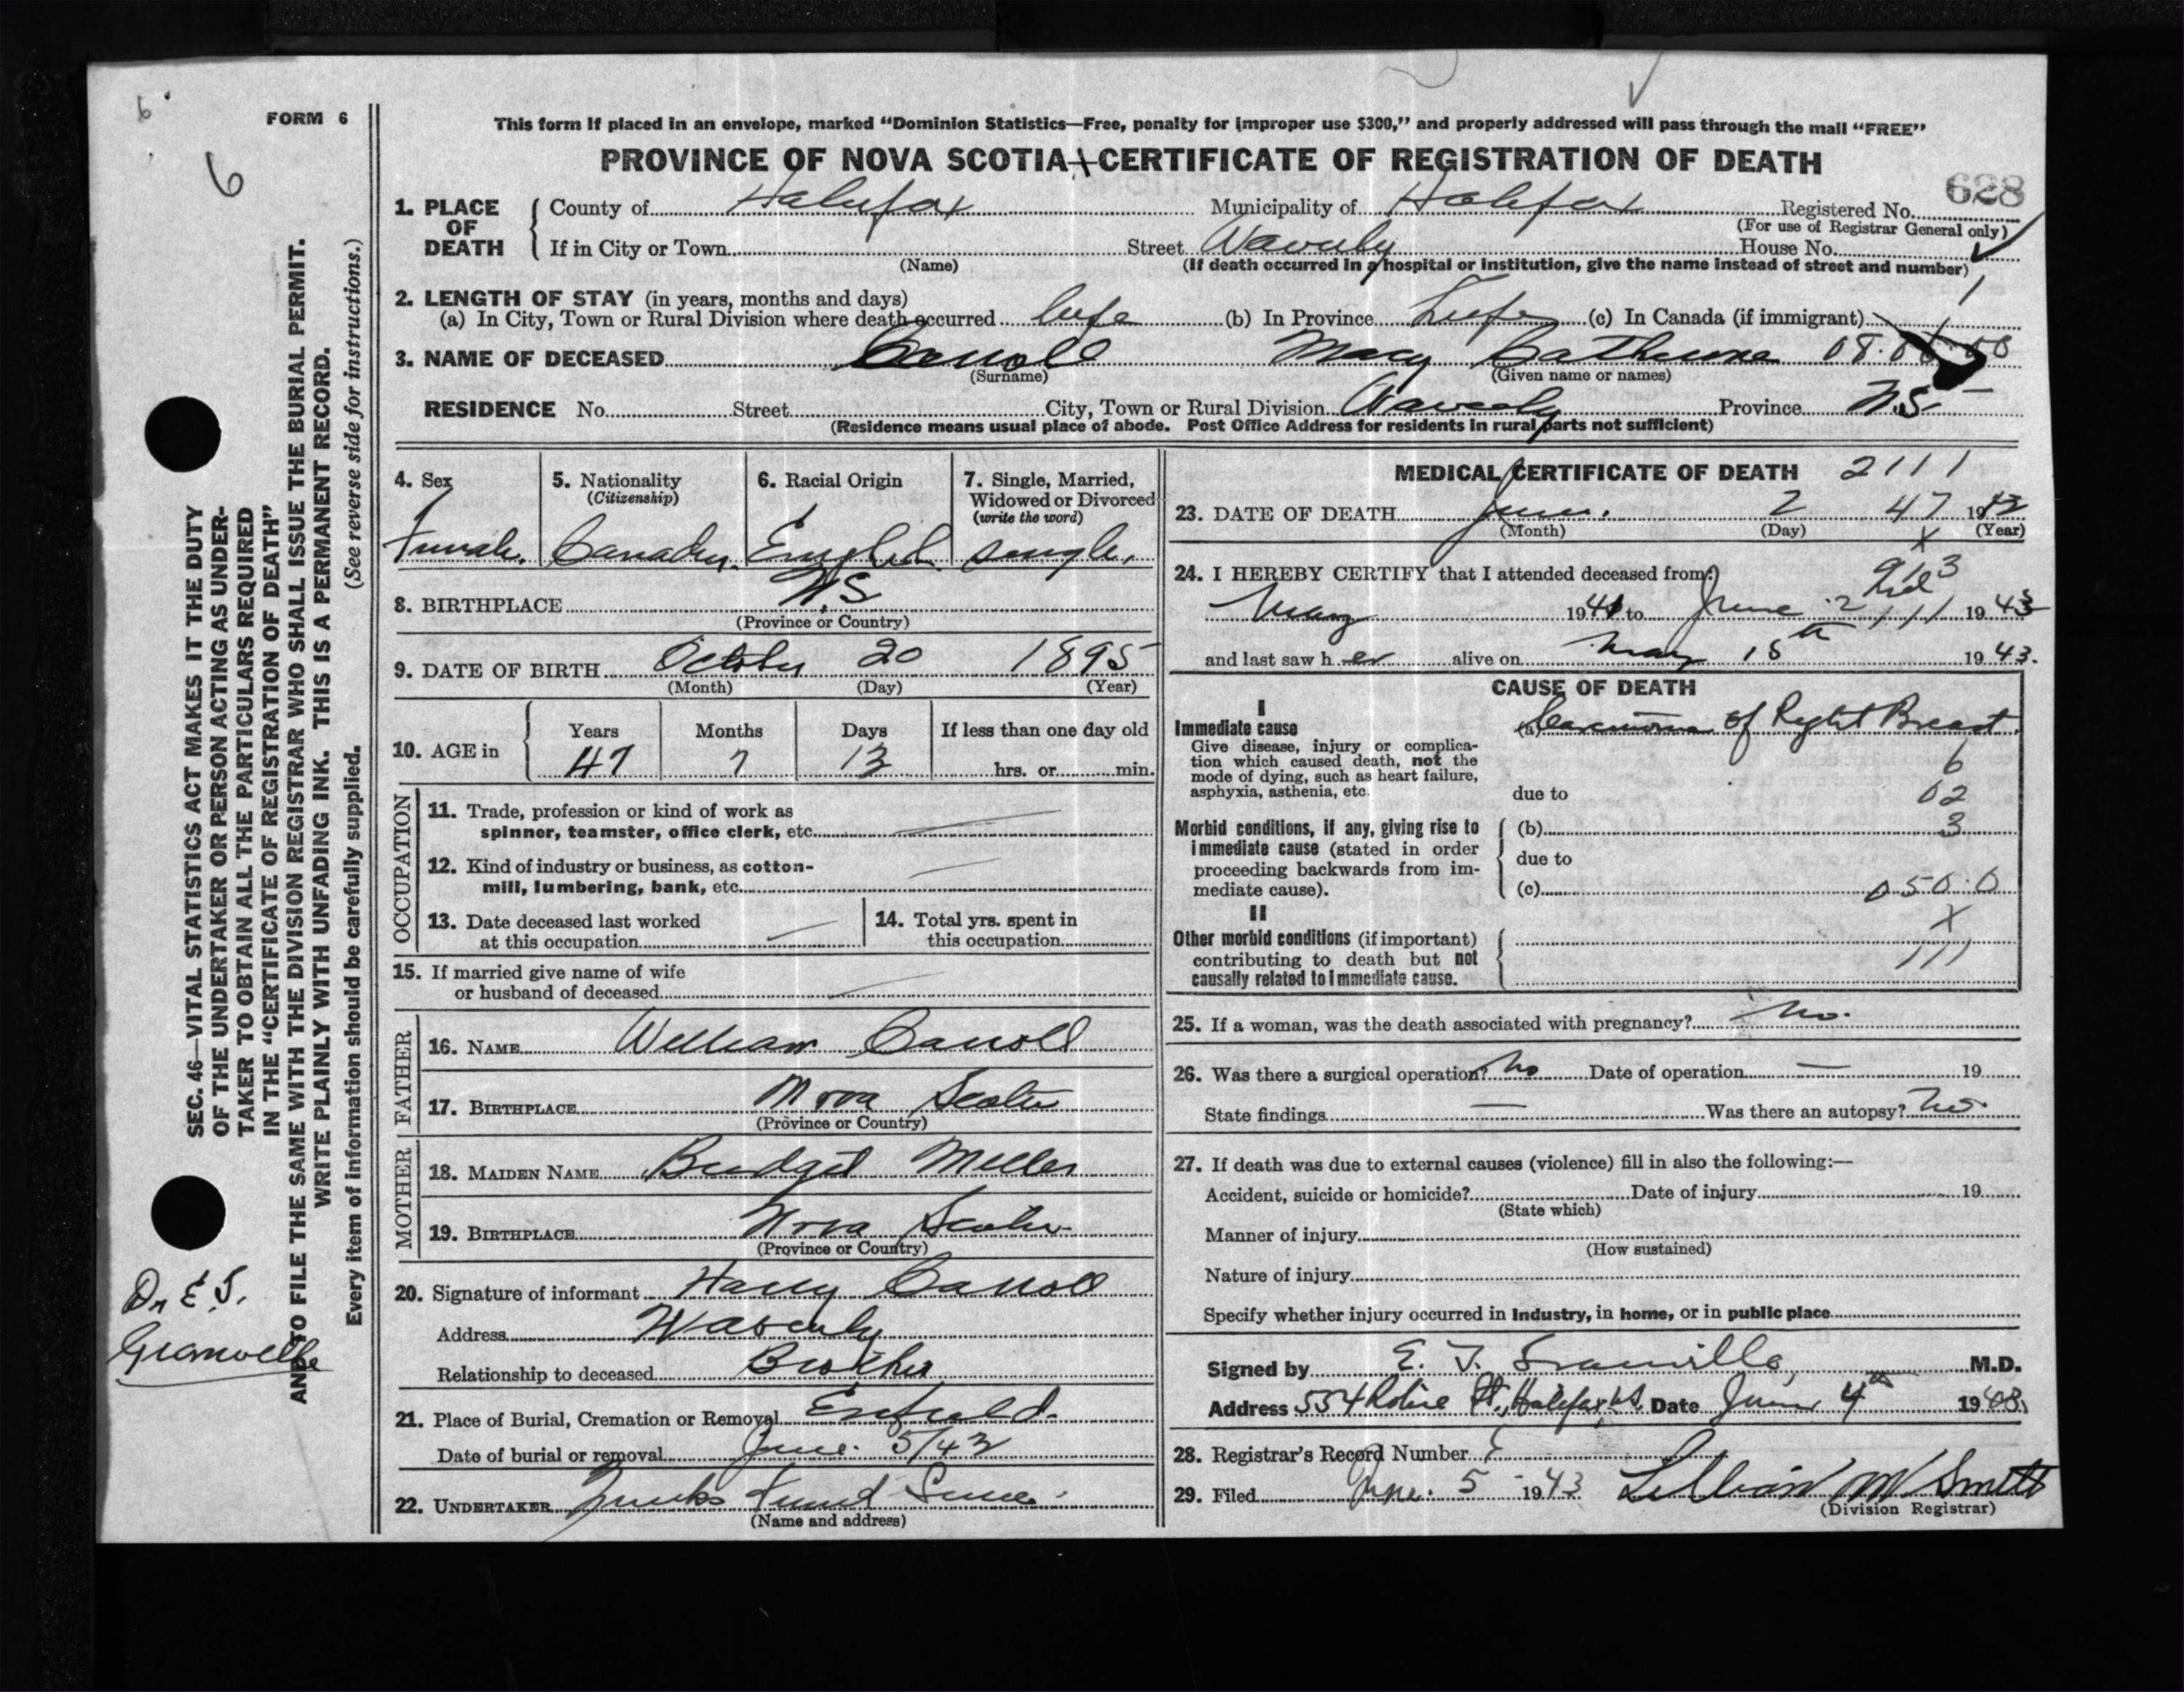 FORM 6
6
6
This form if placed in an envelope, marked "Dominion Statistics—Free, penalty for improper use $300," and properly addressed will pass through the mail "FREE"
PROVINCE OF NOVA SCOTIA—CERTIFICATE OF REGISTRATION OF DEATH
628
1. PLACE OF DEATH County of Halifax Municipality of Halifax Registered No.
(For use of Registrar General only)
If in City or Town Street Waverly House No.
(Name) (If death occurred in a hospital or institution, give the name instead of street and number)
2. LENGTH OF STAY (in years, months and days)
(a) In City, Town or Rural Division where death occurred life (b) In Province Life (c) In Canada (if immigrant)
3. NAME OF DECEASED Carroll Mary Catherine
(Surname) (Given name or names)
RESIDENCE No. Street City, Town or Rural Division Waverly Province N.S
(Residence means usual place of abode. Post Office Address for residents in rural parts not sufficient)
4. Sex 5. Nationality 6. Racial Origin 7. Single, Married,
(Citizenship) Widowed or Divorced
(write the word)
Female. Canadian English single.
8. BIRTHPLACE N.S
(Province or Country)
9. DATE OF BIRTH October 20 1895
(Month) (Day) (Year)
10. AGE in Years Months Days If less than one day old
47 7 13 hrs. or min.
OCCUPATION
11. Trade, profession or kind of work as
spinner, teamster, office clerk, etc.
12. Kind of industry or business, as cotton-
mill, lumbering, bank, etc.
13. Date deceased last worked 14. Total yrs. spent in
at this occupation this occupation
15. If married give name of wife
or husband of deceased
FATHER
16. NAME William Carroll
17. BIRTHPLACE Nova Scotia
(Province or Country)
MOTHER
18. MAIDEN NAME Bridget Miller
19. BIRTHPLACE Nova Scotia
(Province or Country)
20. Signature of informant Harry Carroll
Address Waverly
Relationship to deceased Brother
21. Place of Burial, Cremation or Removal Enfield.
Date of burial or removal June 5/43
22. UNDERTAKER
(Name and address)
MEDICAL CERTIFICATE OF DEATH 2111
23. DATE OF DEATH June. 2 47 1943
(Month) (Day) (Year)
24. I HEREBY CERTIFY that I attended deceased from:
May 1941 to June 2 1943
and last saw h er alive on May 15th 1943.
CAUSE OF DEATH
I
Immediate cause (a) Carcinoma of Right Breast.
Give disease, injury or complica-
tion which caused death, not the
mode of dying, such as heart failure,
asphyxia, asthenia, etc.
6
due to 02
Morbid conditions, if any, giving rise to (b) 3
immediate cause (stated in order due to
proceeding backwards from im-
mediate cause). (c) 050.0
II X
Other morbid conditions (if important)
contributing to death but not 111
causally related to immediate cause.
25. If a woman, was the death associated with pregnancy? No.
26. Was there a surgical operation? No Date of operation — 19
State findings — Was there an autopsy? No.
27. If death was due to external causes (violence) fill in also the following:—
Accident, suicide or homicide? Date of injury 19
(State which)
Manner of injury
(How sustained)
Nature of injury
Specify whether injury occurred in Industry, in home, or in public place
Signed by E. T. Granville, M.D.
Address 554 Robie St., Halifax, N.S. Date June 4th 1943.
28. Registrar's Record Number
29. Filed June. 5 1943 Lillian M Smith
(Division Registrar)
SEC. 46—VITAL STATISTICS ACT MAKES IT THE DUTY
OF THE UNDERTAKER OR PERSON ACTING AS UNDER-
TAKER TO OBTAIN ALL THE PARTICULARS REQUIRED
IN THE "CERTIFICATE OF REGISTRATION OF DEATH"
AND TO FILE THE SAME WITH THE DIVISION REGISTRAR WHO SHALL ISSUE THE BURIAL PERMIT.
WRITE PLAINLY WITH UNFADING INK. THIS IS A PERMANENT RECORD.
Every item of information should be carefully supplied. (See reverse side for instructions.)
Dr E T.
Granville